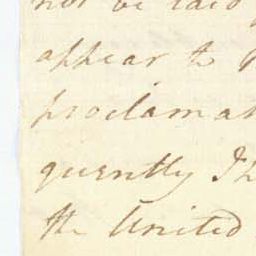 not be laid
appear to
proclama
quently I h
the United